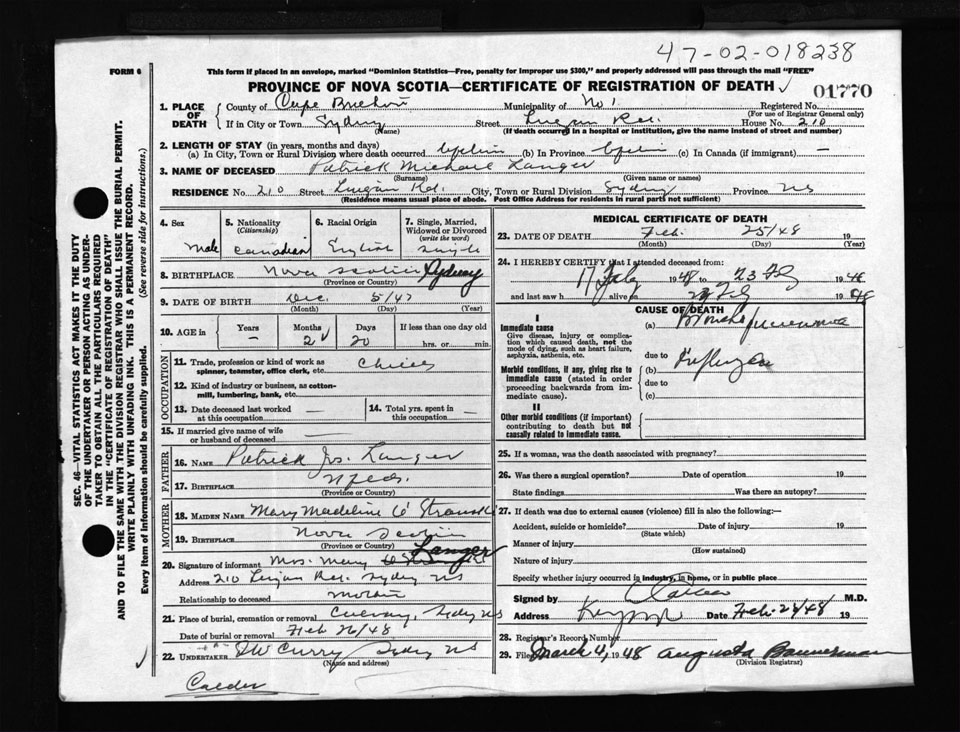 47-02-018238
FORM 6
This form if placed in an envelope, marked "Dominion Statistics—Free, penalty for improper use $300," and properly addressed will pass through the mail "FREE"
PROVINCE OF NOVA SCOTIA—CERTIFICATE OF REGISTRATION OF DEATH
01770
1. PLACE OF DEATH
County of Cape Breton Municipality of No 1 Registered No.
(For use of Registrar General only)
If in City or Town Sydney Street House No. 210
(Name) (If death occurred in a hospital or institution, give the name instead of street and number)
2. LENGTH OF STAY (in years, months and days)
(a) In City, Town or Rural Division where death occurred (b) In Province (c) In Canada (if immigrant) —
3. NAME OF DECEASED Patrick Michael Langer
(Surname) (Given name or names)
RESIDENCE No. 210 Street City, Town or Rural Division Sydney Province NS
(Residence means usual place of abode. Post Office Address for residents in rural parts not sufficient)
4. Sex Male
5. Nationality (Citizenship) Canadian
6. Racial Origin
7. Single, Married, Widowed or Divorced (write the word) Single
8. BIRTHPLACE Nova Scotia Sydney
(Province or Country)
9. DATE OF BIRTH Dec. 5/47
(Month) (Day) (Year)
10. AGE in Years Months Days If less than one day old
— 2 20 hrs. or min.
OCCUPATION
11. Trade, profession or kind of work as spinner, teamster, office clerk, etc. Child
12. Kind of industry or business, as cotton-mill, lumbering, bank, etc.
13. Date deceased last worked at this occupation —
14. Total yrs. spent in this occupation —
15. If married give name of wife or husband of deceased —
FATHER
16. NAME Patrick Js. Langer
17. BIRTHPLACE Nfld.
(Province or Country)
MOTHER
18. MAIDEN NAME Mary Madeline
19. BIRTHPLACE Nova Scotia
(Province or Country)
20. Signature of informant Mrs. Mary Langer
Address 210 Sydney NS
Relationship to deceased Mother
21. Place of burial, cremation or removal Sydney NS
Date of burial or removal Feb 26/48
22. UNDERTAKER Curry Sydney NS
(Name and address)
Calder
MEDICAL CERTIFICATE OF DEATH
23. DATE OF DEATH Feb. 25/48 19
(Month) (Day) (Year)
24. I HEREBY CERTIFY that I attended deceased from:
17 Feby 1948 to 23 Feb 1948
and last saw h alive on 23 Feb 1948
CAUSE OF DEATH
I
Immediate cause
Give disease, injury or complication which caused death, not the mode of dying, such as heart failure, asphyxia, asthenia, etc.
(a) Broncho pneumonia
due to
Morbid conditions, if any, giving rise to immediate cause (stated in order proceeding backwards from immediate cause).
(b) Influenza
due to
(c)
II
Other morbid conditions (if important) contributing to death but not causally related to immediate cause.
25. If a woman, was the death associated with pregnancy?
26. Was there a surgical operation? Date of operation 19
State findings Was there an autopsy?
27. If death was due to external causes (violence) fill in also the following:—
Accident, suicide or homicide? Date of injury 19
(State which)
Manner of injury
(How sustained)
Nature of injury
Specify whether injury occurred in industry, in home, or in public place
Signed by M.D.
Address Date Feb. 28/48 19
28. Registrar's Record Number
29. Filed March 4, 1948 Augusta Bannerman
(Division Registrar)
SEC. 46—VITAL STATISTICS ACT MAKES IT THE DUTY
OF THE UNDERTAKER OR PERSON ACTING AS UNDER-
TAKER TO OBTAIN ALL THE PARTICULARS REQUIRED
IN THE "CERTIFICATE OF REGISTRATION OF DEATH"
AND TO FILE THE SAME WITH THE DIVISION REGISTRAR WHO SHALL ISSUE THE BURIAL PERMIT.
WRITE PLAINLY WITH UNFADING INK. THIS IS A PERMANENT RECORD.
Every item of information should be carefully supplied. (See reverse side for instructions.)